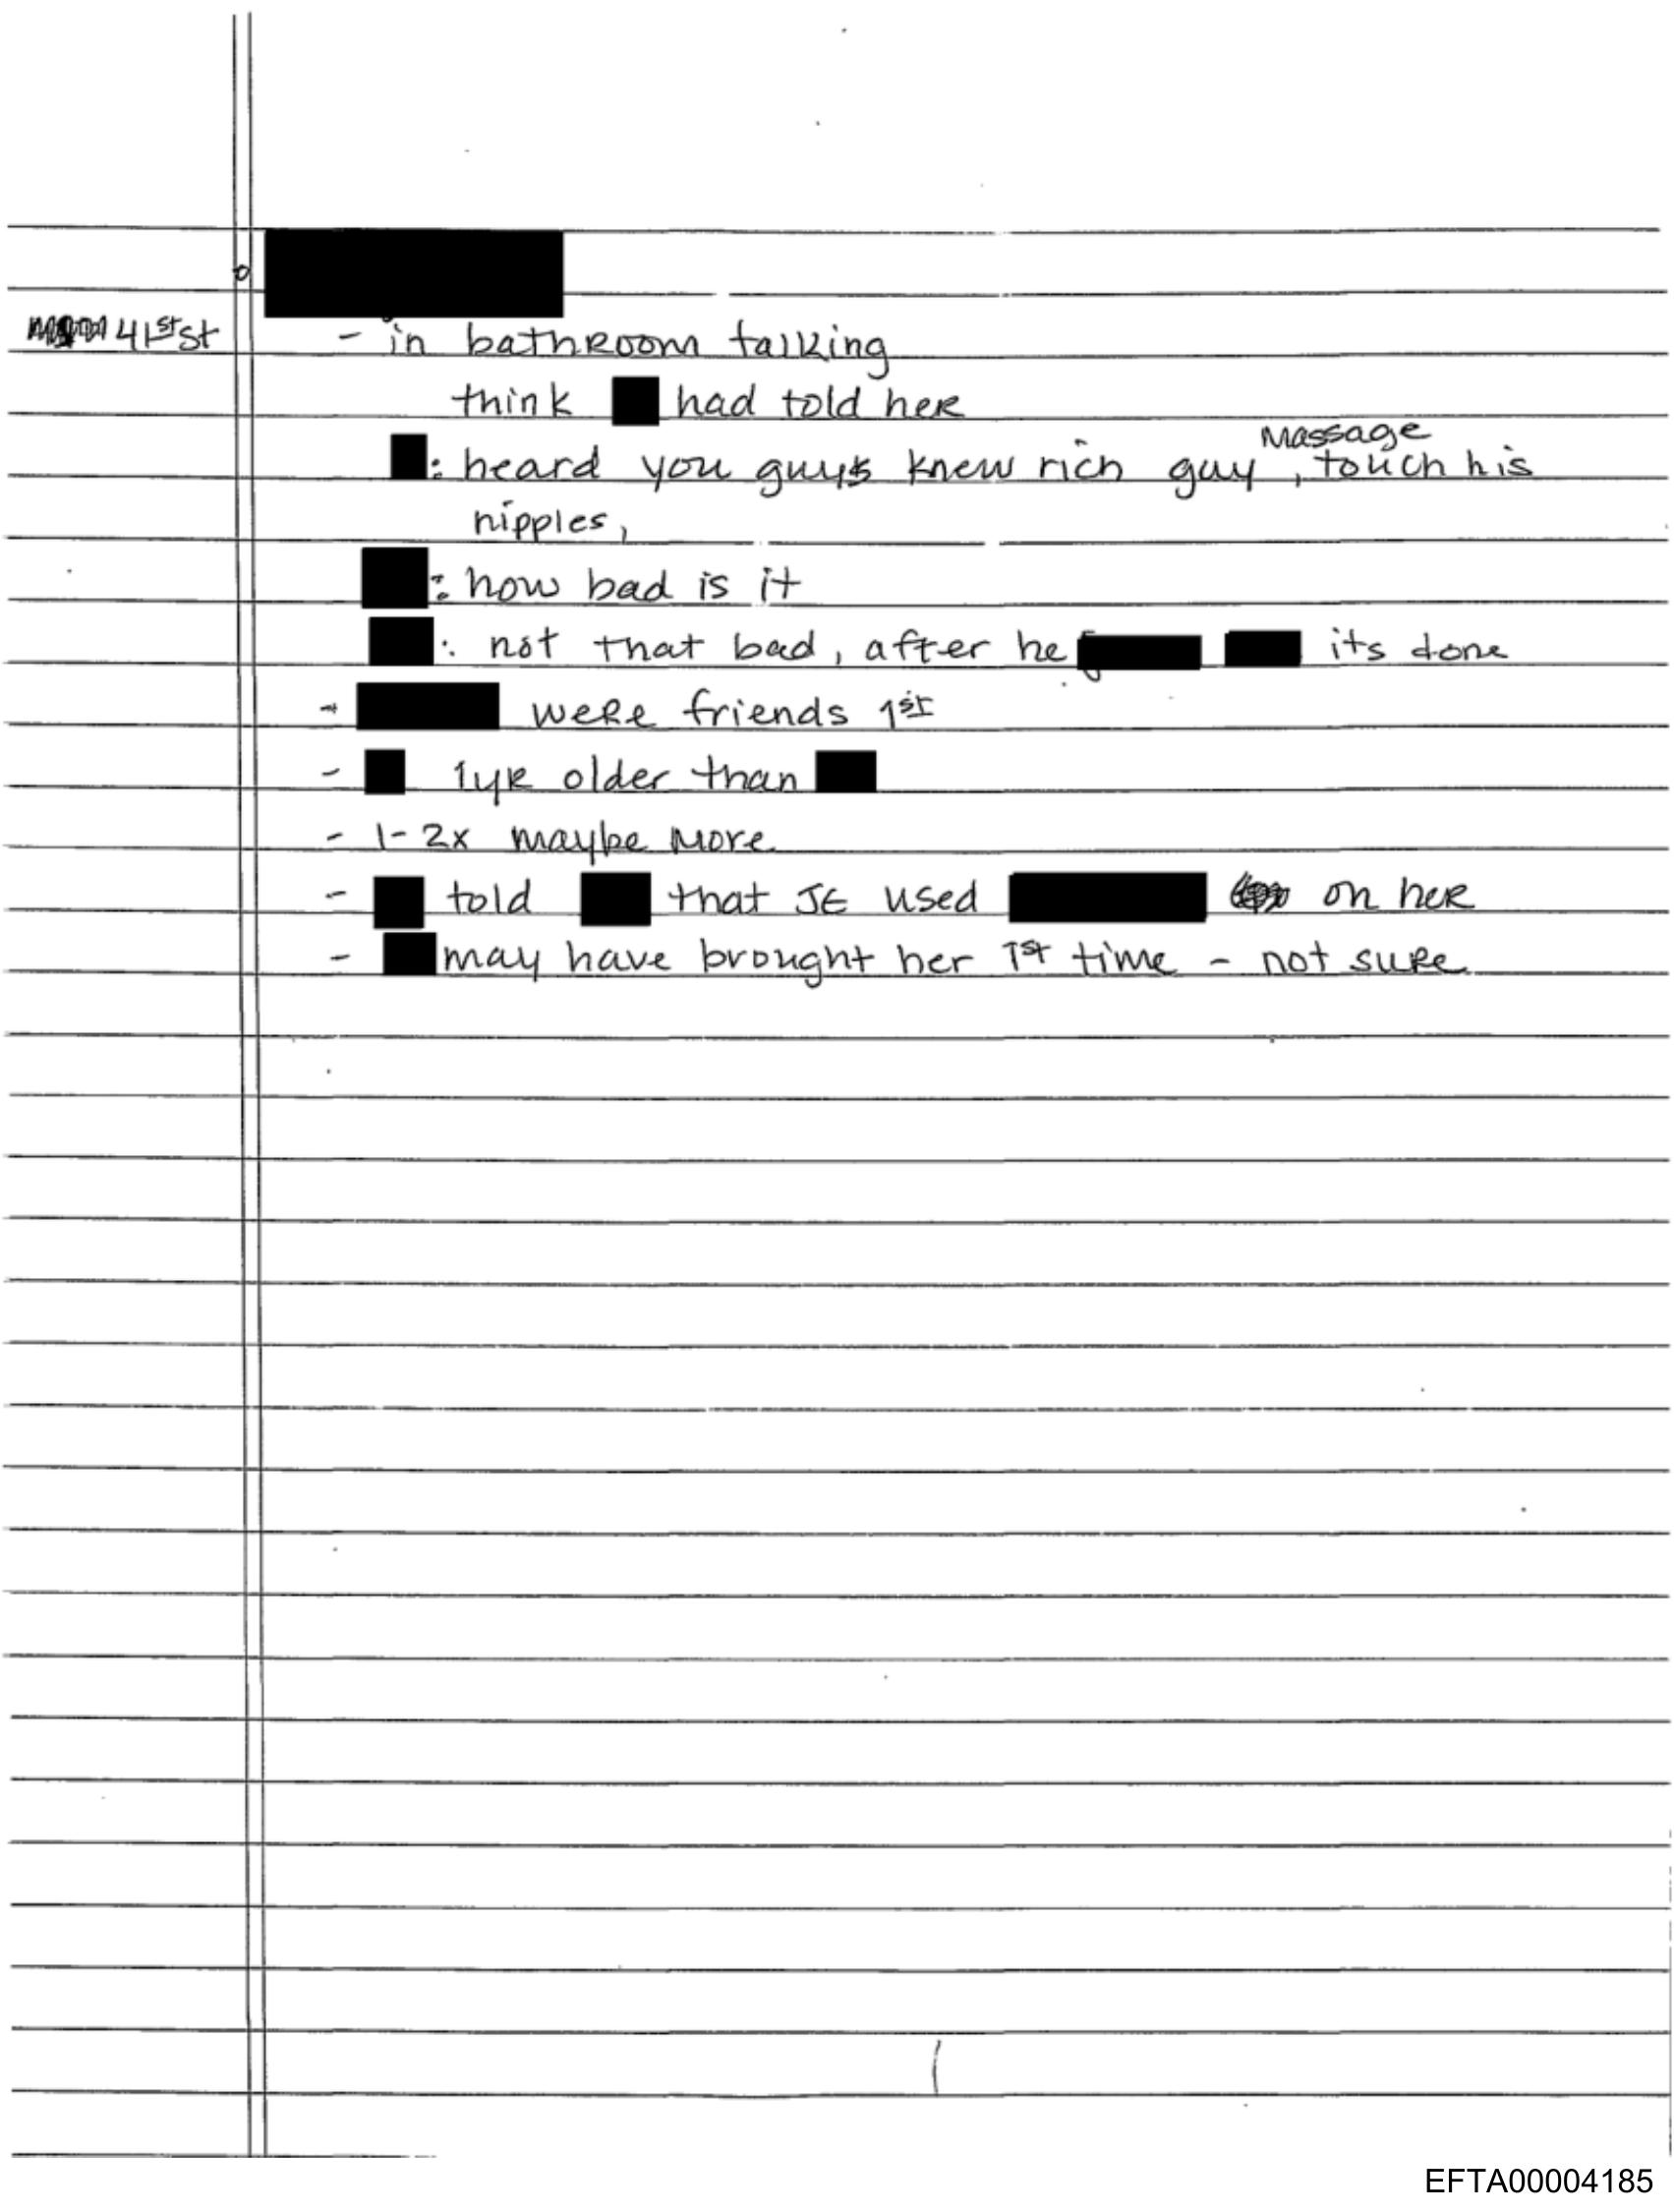 41st st
- in bathroom talking
think had told her
: heard you guys knew rich guy massage, touch his
nipples,
: how bad is it
: not that bad, after he its done
- were friends 1st
- 1yr older than
- 1-2x maybe more
- told that JE used on her
- may have brought her 1st time - not sure
EFTA00004185